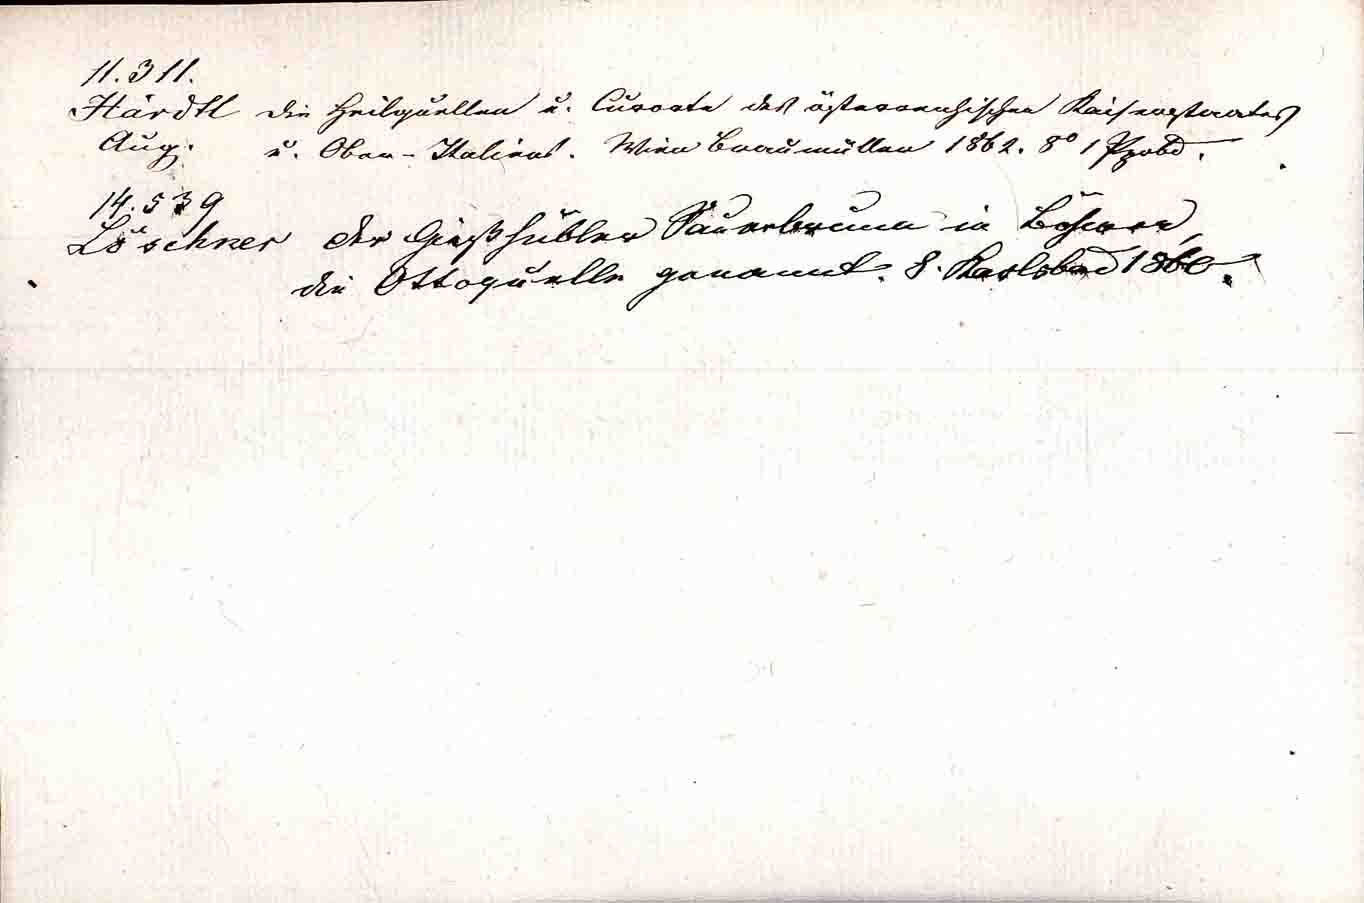 11.311.
Härdtl die Heilquellen u. Curorte des österreichischen Kaiserstaates
Aug. u. Ober-Italiens. Wien Braumüller 1862. 8° 1 Ppbd.
14.539
Löschner der Gießhübler Sauerbrunn in Böhmen,
die Ottoquelle genannt. 8. Karlsbad 1860.